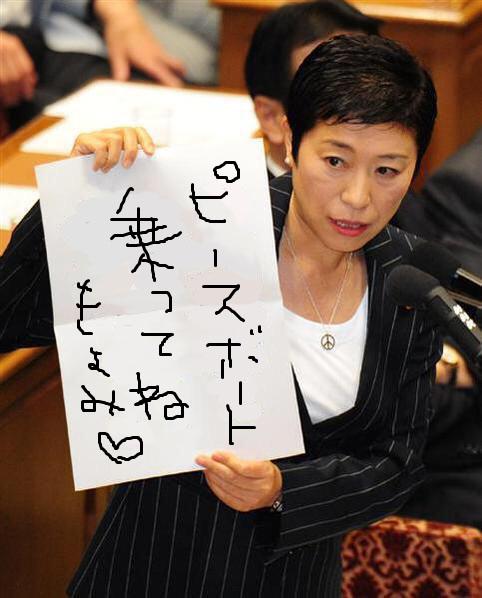 ピースボート
乗ってね
きよみ♡